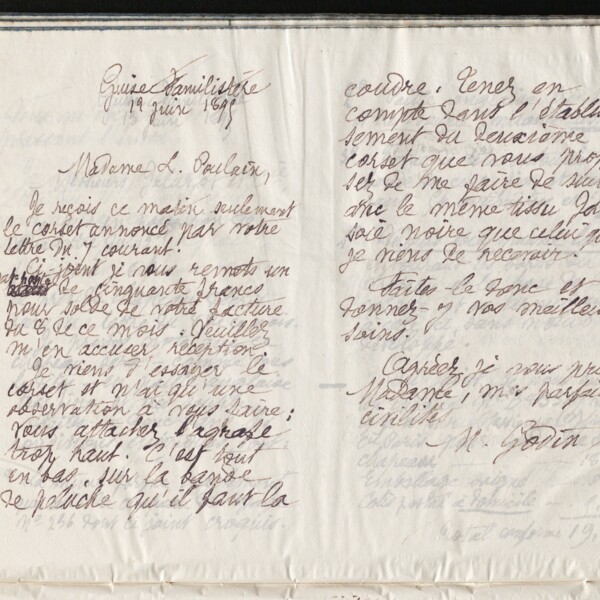 Guise Familistère
19 juin 1895
Madame L. Poulain,
Je reçois ce matin seulement
le corset annoncé par votre
lettre du 7 courant.
Ci-joint je vous remets un
de cinquante francs
pour solde de votre facture
du 8 de ce mois. Veuillez
m'en accuser réception
Je viens d'essayer le
corset et n'ai qu'une
observation à vous faire :
vous attachez l'agrafe
trop haut. C'est tout
en bas, sur la bande
de peluche qu'il faut la
coudre. Tenez en
compte dans l'établis
sement du deuxième
corset que vous propo
sez de me faire de suite
avec le même tissu
soie noire que celui que
je viens de recevoir.
Faites-le donc et
donnez-y vos meilleurs
soins.
Agréez, je vous prie
Madame, mes parfaites
civilités
M. Godin